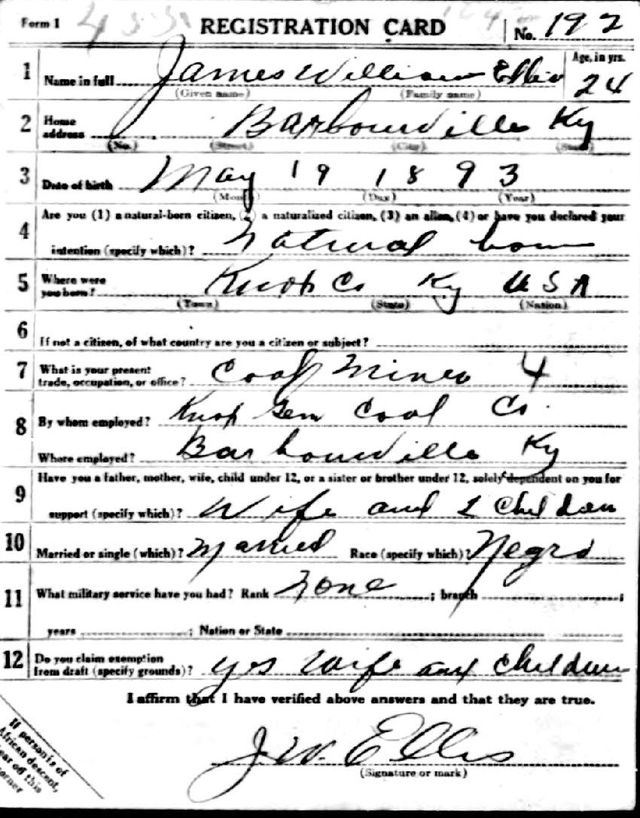 Form 1
REGISTRATION CARD
No. 192
1 Name in full James William Ellis Age, in yrs. 24
(Given name) (Family name)
2 Home address Barbourville Ky
(No.) (Street) (City) (State)
3 Date of birth May 19 1893
(Month) (Day) (Year)
Are you (1) a natural-born citizen, (2) a naturalized citizen, (3) an alien, (4) or have you declared your
4 intention (specify which)? Natural born
5 Where were you born? Knox Co Ky USA
(Town) (State) (Nation)
6 If not a citizen, of what country are you a citizen or subject?
7 What is your present trade, occupation, or office? Coal Miner 4
8 By whom employed? Knox Gem Coal Co.
Where employed? Barbourville Ky
Have you a father, mother, wife, child under 12, or a sister or brother under 12, solely dependent on you for
9 support (specify which)? Wife and 2 Children
10 Married or single (which)? Married Race (specify which)? Negro
11 What military service have you had? Rank None ; branch ;
years ; Nation or State
12 Do you claim exemption from draft (specify grounds)? Yes Wife and Children
I affirm that I have verified above answers and that they are true.
J.W. Ellis
(Signature or mark)
If person is of
African descent,
tear off this
corner